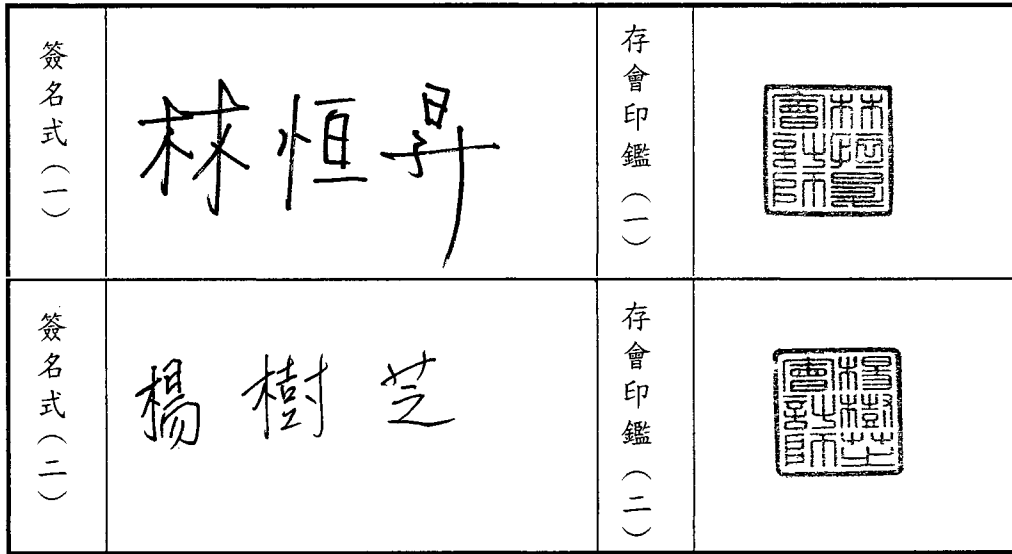 簽名式(一)
林恒昇
存會印鑑(一)
林恒昇會計師
簽名式(二)
楊樹芝
存會印鑑(二)
楊樹芝會計師